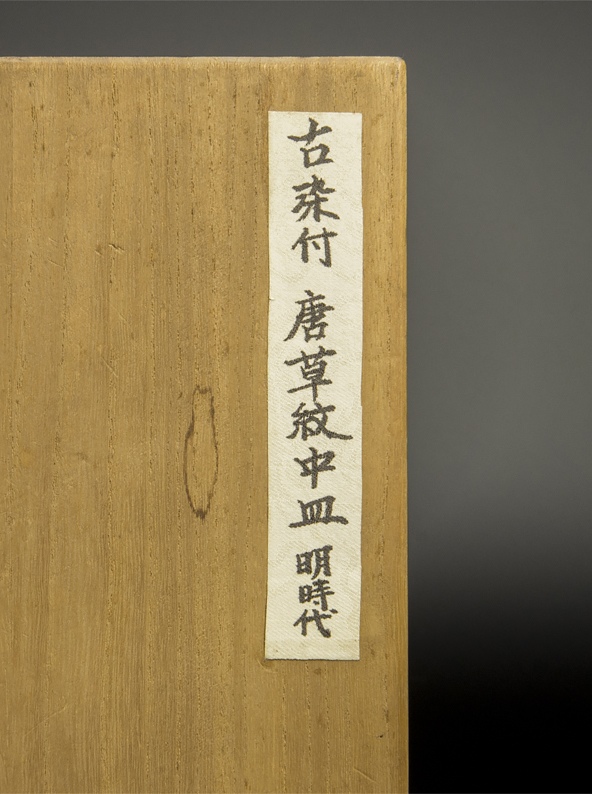 古染付 唐草紋中皿 明時代